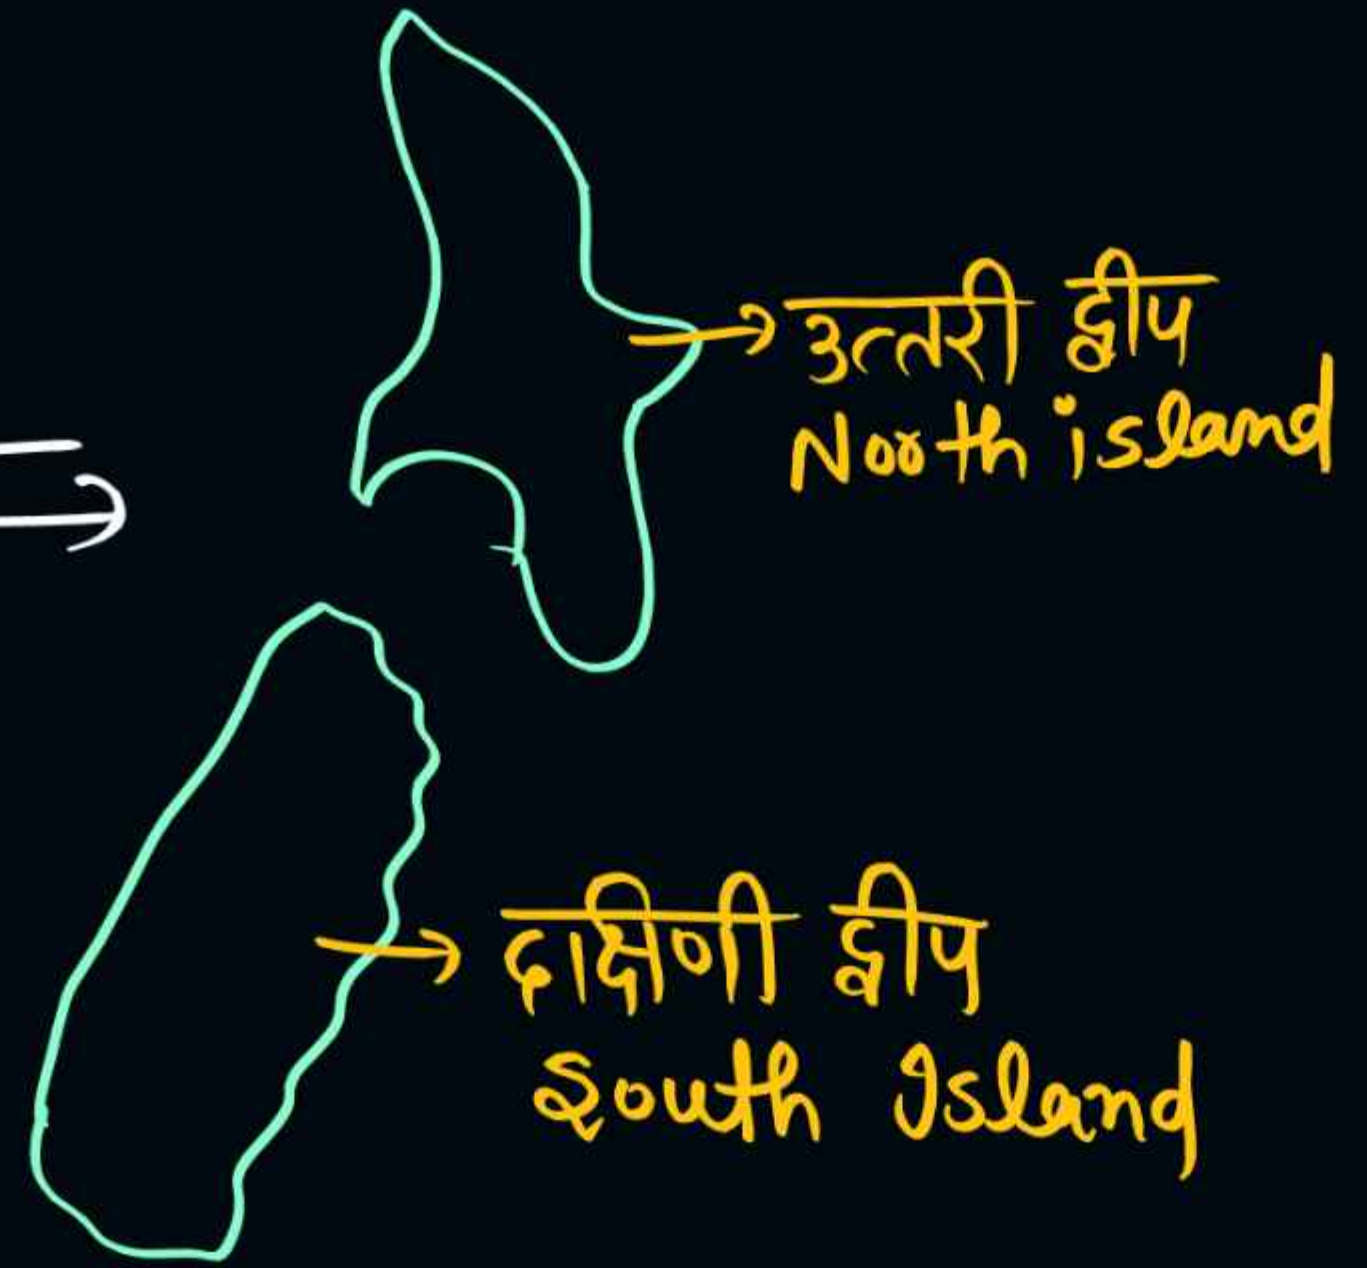 उत्तरी द्वीप
North island
दक्षिणी द्वीप
South Island